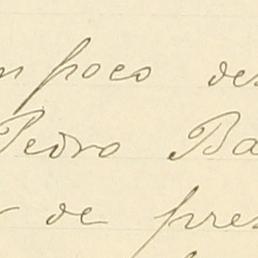 poco de
Pedro Ba
de pres